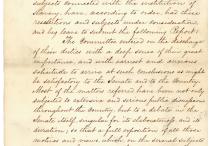 subjects connected with the institution of
slavery, have, according to order, had those
resolutions and subjects under consideration,
and beg leave to submit the following Report:
The Committee entered on the discharge
of their duties with a deep sense of their great
importance, and with earnest and anxious
solicitude to arrive at such conclusions as might
be satisfactory to the Senate and to the Country.
Most of the matters referred have been not only
subjected to extensive and serious public discussion
throughout the Country, but to a debate in the
Senate itself, singular for its elaborateness and its
duration; so that a full exposition of all those
motives and views which on the several subjects